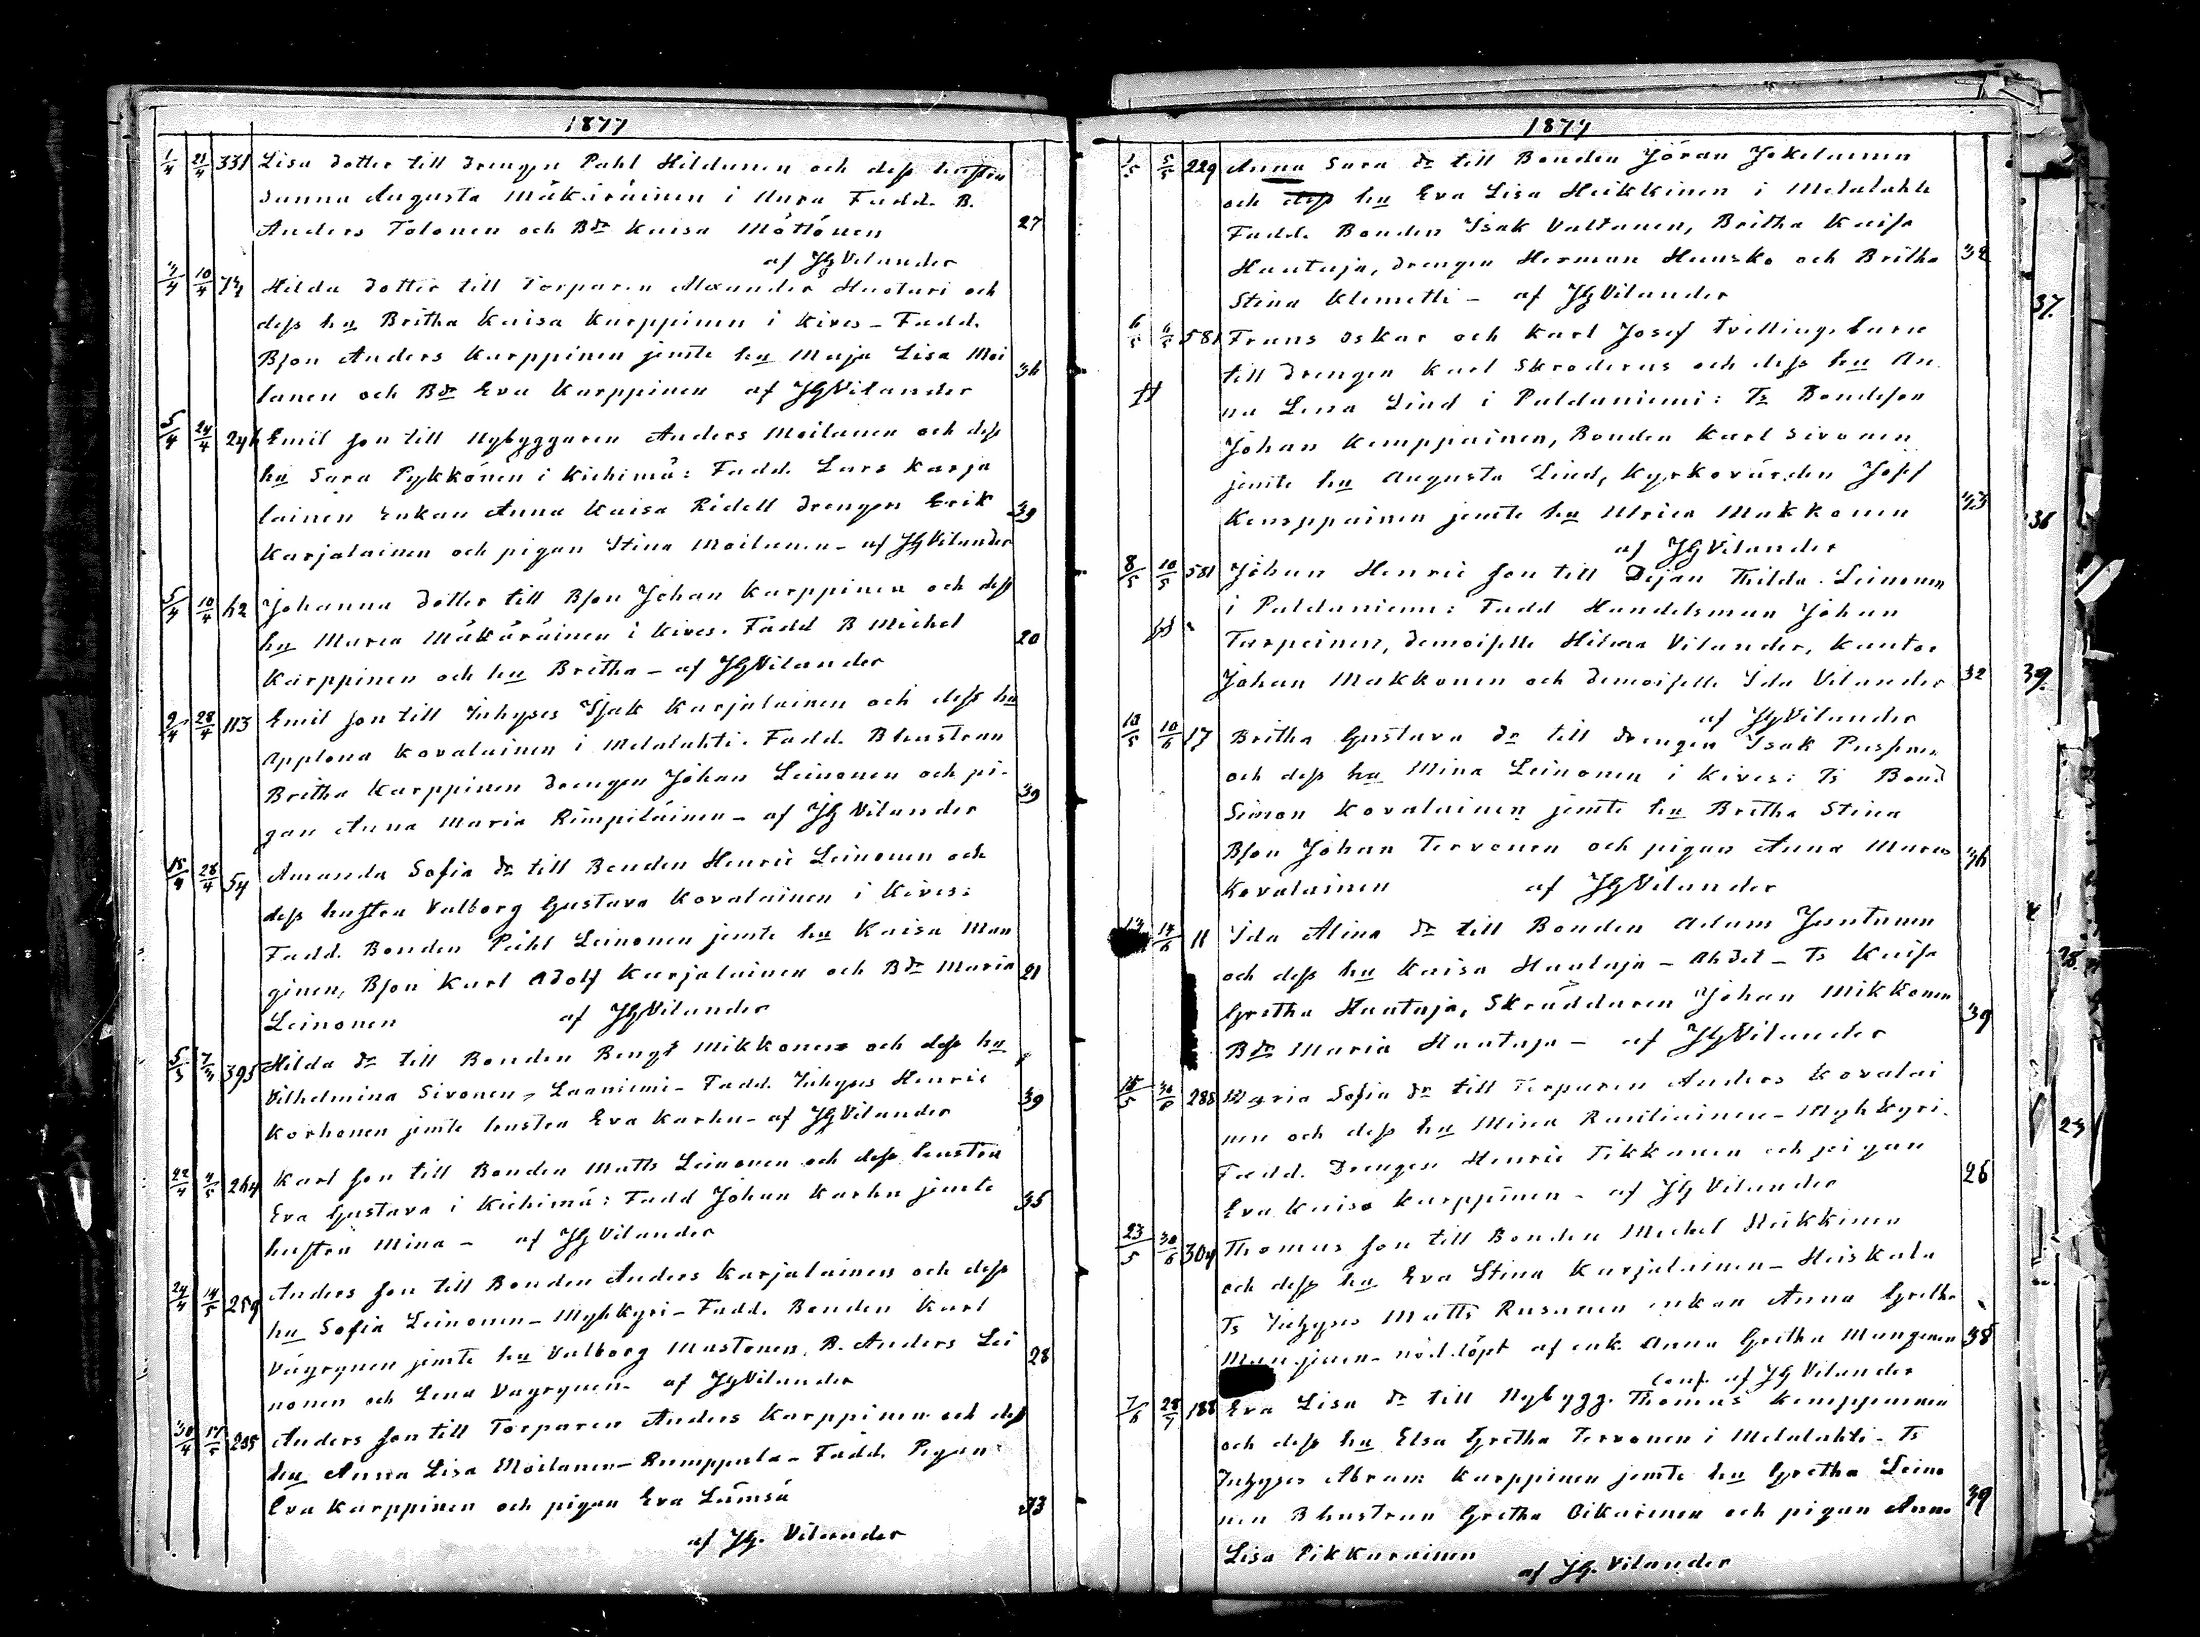 1877
1/4 21/4 331 Lisa dotter till drengen Pahl Hildunen och dess hustru
Sanna Augusta Mäkäräinen i Fadd. B.
Anders Tolonen och Bdr Kaisa Möttönen 27
af JGVilander
10/4 Hilda dotter till Torparen Alexander Huoturi och
dess hu Britha Kaisa Karppinen i Kives – Fadd.
Bson Anders Karppinen jemte hu Maja Lisa Moi
lanen och Bdr Eva Karppinen af JGVilander
5/4 24/4 Emil son till Nybyggaren Anders Moilanen och dess
hu Sara Pykkönen i Kiehimä: Fadd. Lars Karja
lainen Enkan Anna Kaisa Ridell Drengen Erik 39
Karjalainen och pigan Stina Moilanen – af JGVilander
5/4 10/4 62 Johanna dotter till Bson Johan Karppinen och dess
hu Maria Mäkäräinen i Kives. Fadd B Michel 20
Karppinen och hu Britha – af JGVilander
9/4 28/4 113 Emil son till Inhyses Isak Karjalainen och dess hu
Applona Kovalainen i Melalahti. Fadd. B hustrun
Britha Karppinen drengen Johan Leinonen och pi- 39
gan Anna Maria Rimpiläinen – af JG Vilander
15/4 28/4 54 Amanda Sofia dr till Bonden Henric Leinonen och
dess hustru Valborg Gustava Kovalainen i Kives:
Fadd. Bonden Påhl Leinonen jemte hu Kaisa Man
ginen, Bson Karl Adolf Karjalainen och Bdr Maria 21
Leinonen af JGVilander
395 Hilda dr till Bonden Bengt Mikkonen och dess hu
Vilhelmina Sivonen, Laaniemi – Fadd. Inhyses Henric 39
Korhonen jemte hustru Eva Karhu – af JGVilander
22/4 264 Karl son till Bonden Matts Leinonen och dess hustru
Eva Gustava i Kiehimä: Fadd Johan Karhu jemte 35
hustru Mina – af JG Vilander
24/4 14/5 259 Anders son till Bonden Anders Karjalainen och dess
hu Sofia Leinonen – Myhkyri – Fadd. Bonden Karl
Väyrynen jemte hu Valborg Mustonen, B. Anders Lei 28
nonen och Lena Väyrynen. af JGVilander
30/4 17/5 Anders son till Torparen Anders Karppinen och dess
hu Anna Lisa Moilanen – Rumppula – Fadd. Pigan
Eva Karppinen och pigan Eva Lämsä 33
af JG. Vilander
1877
5/5 229 Anna Sara dr till Bonden Jöran Jokelainen
och dess hu Eva Lisa Heikkinen i Melalahti
Fadd. Bonden Isak Valtanen, Britha Kaisa
Hautaja, drengen Herman Hunsko och Britha
Stina Klemetti – af JGVilander
37.
581 Frans Oskar och Karl Josef tvillingebarn
till drengen Karl Skroderus och dess hu An
na Lena Lind i Paldaniemi: Ts Bondeson
Johan Kemppainen, Bonden Karl Sivonen
jemte hu Augusta Lind, Kyrkovärden Josef
Kemppainen jemte hu Ulrica Makkonen
af JGVilander
8/5 10/5 581 Johan Henric son till Pejan Thilda Leinonen
i Paldaniemi: Fadd Handelsman Johan
Turpeinen, Demoiselle Hilma Vilander, Kantor
Johan Makkonen och Demoiselle Ida Vilander 32 39.
af JGVilander
10/5 10/6 17 Britha Gustava dr till drengen Isak
och dess hu Mina Leinonen i Kives: Ts Bond
Simon Kovalainen jemte hu Britha Stina
Bson Johan Tervonen och pigan Anna Maria 36
Kovalainen af JGVilander
14/6 11 Ida Alina dr till Bonden Adam Juntunen
och dess hu Kaisa Hautaja – Ahdet – Ts Kaisa
Gretha Hautaja, Skräddaren Johan Mikkonen 39
Bdr Maria Hautaja – af JGVilander
30/6 288 Maria Sofia dr till Torparen Anders Kovalai
nen och dess hu Mina Rautiainen – Myhkyri.
Fadd. Drengen Henric Tikkanen och pigan 26
Eva Kaisa Karppinen – af JG Vilander
23/5 30/6 304 Thomas son till Bonden Michel Heikkinen
och dess hu Eva Stina Karjalainen – Heiskala
Ts Inhyses Matts Rusanen enkan Anna Gretha
Manginen – nöd.döpt af enk. Anna Gretha Manginen 38
conf. af JG Vilander
7/6 188 Eva Lisa dr till Nybygg. Thomas Kemppainen
och dess hu Elsa Gretha Tervonen i Melalahti – Ts
Inhyses Abram Karppinen jemte hu Gretha Leino
nen B hustrun Gretha Oikarinen och pigan Anna 39
Lisa Pikkarainen
af JG. Vilander